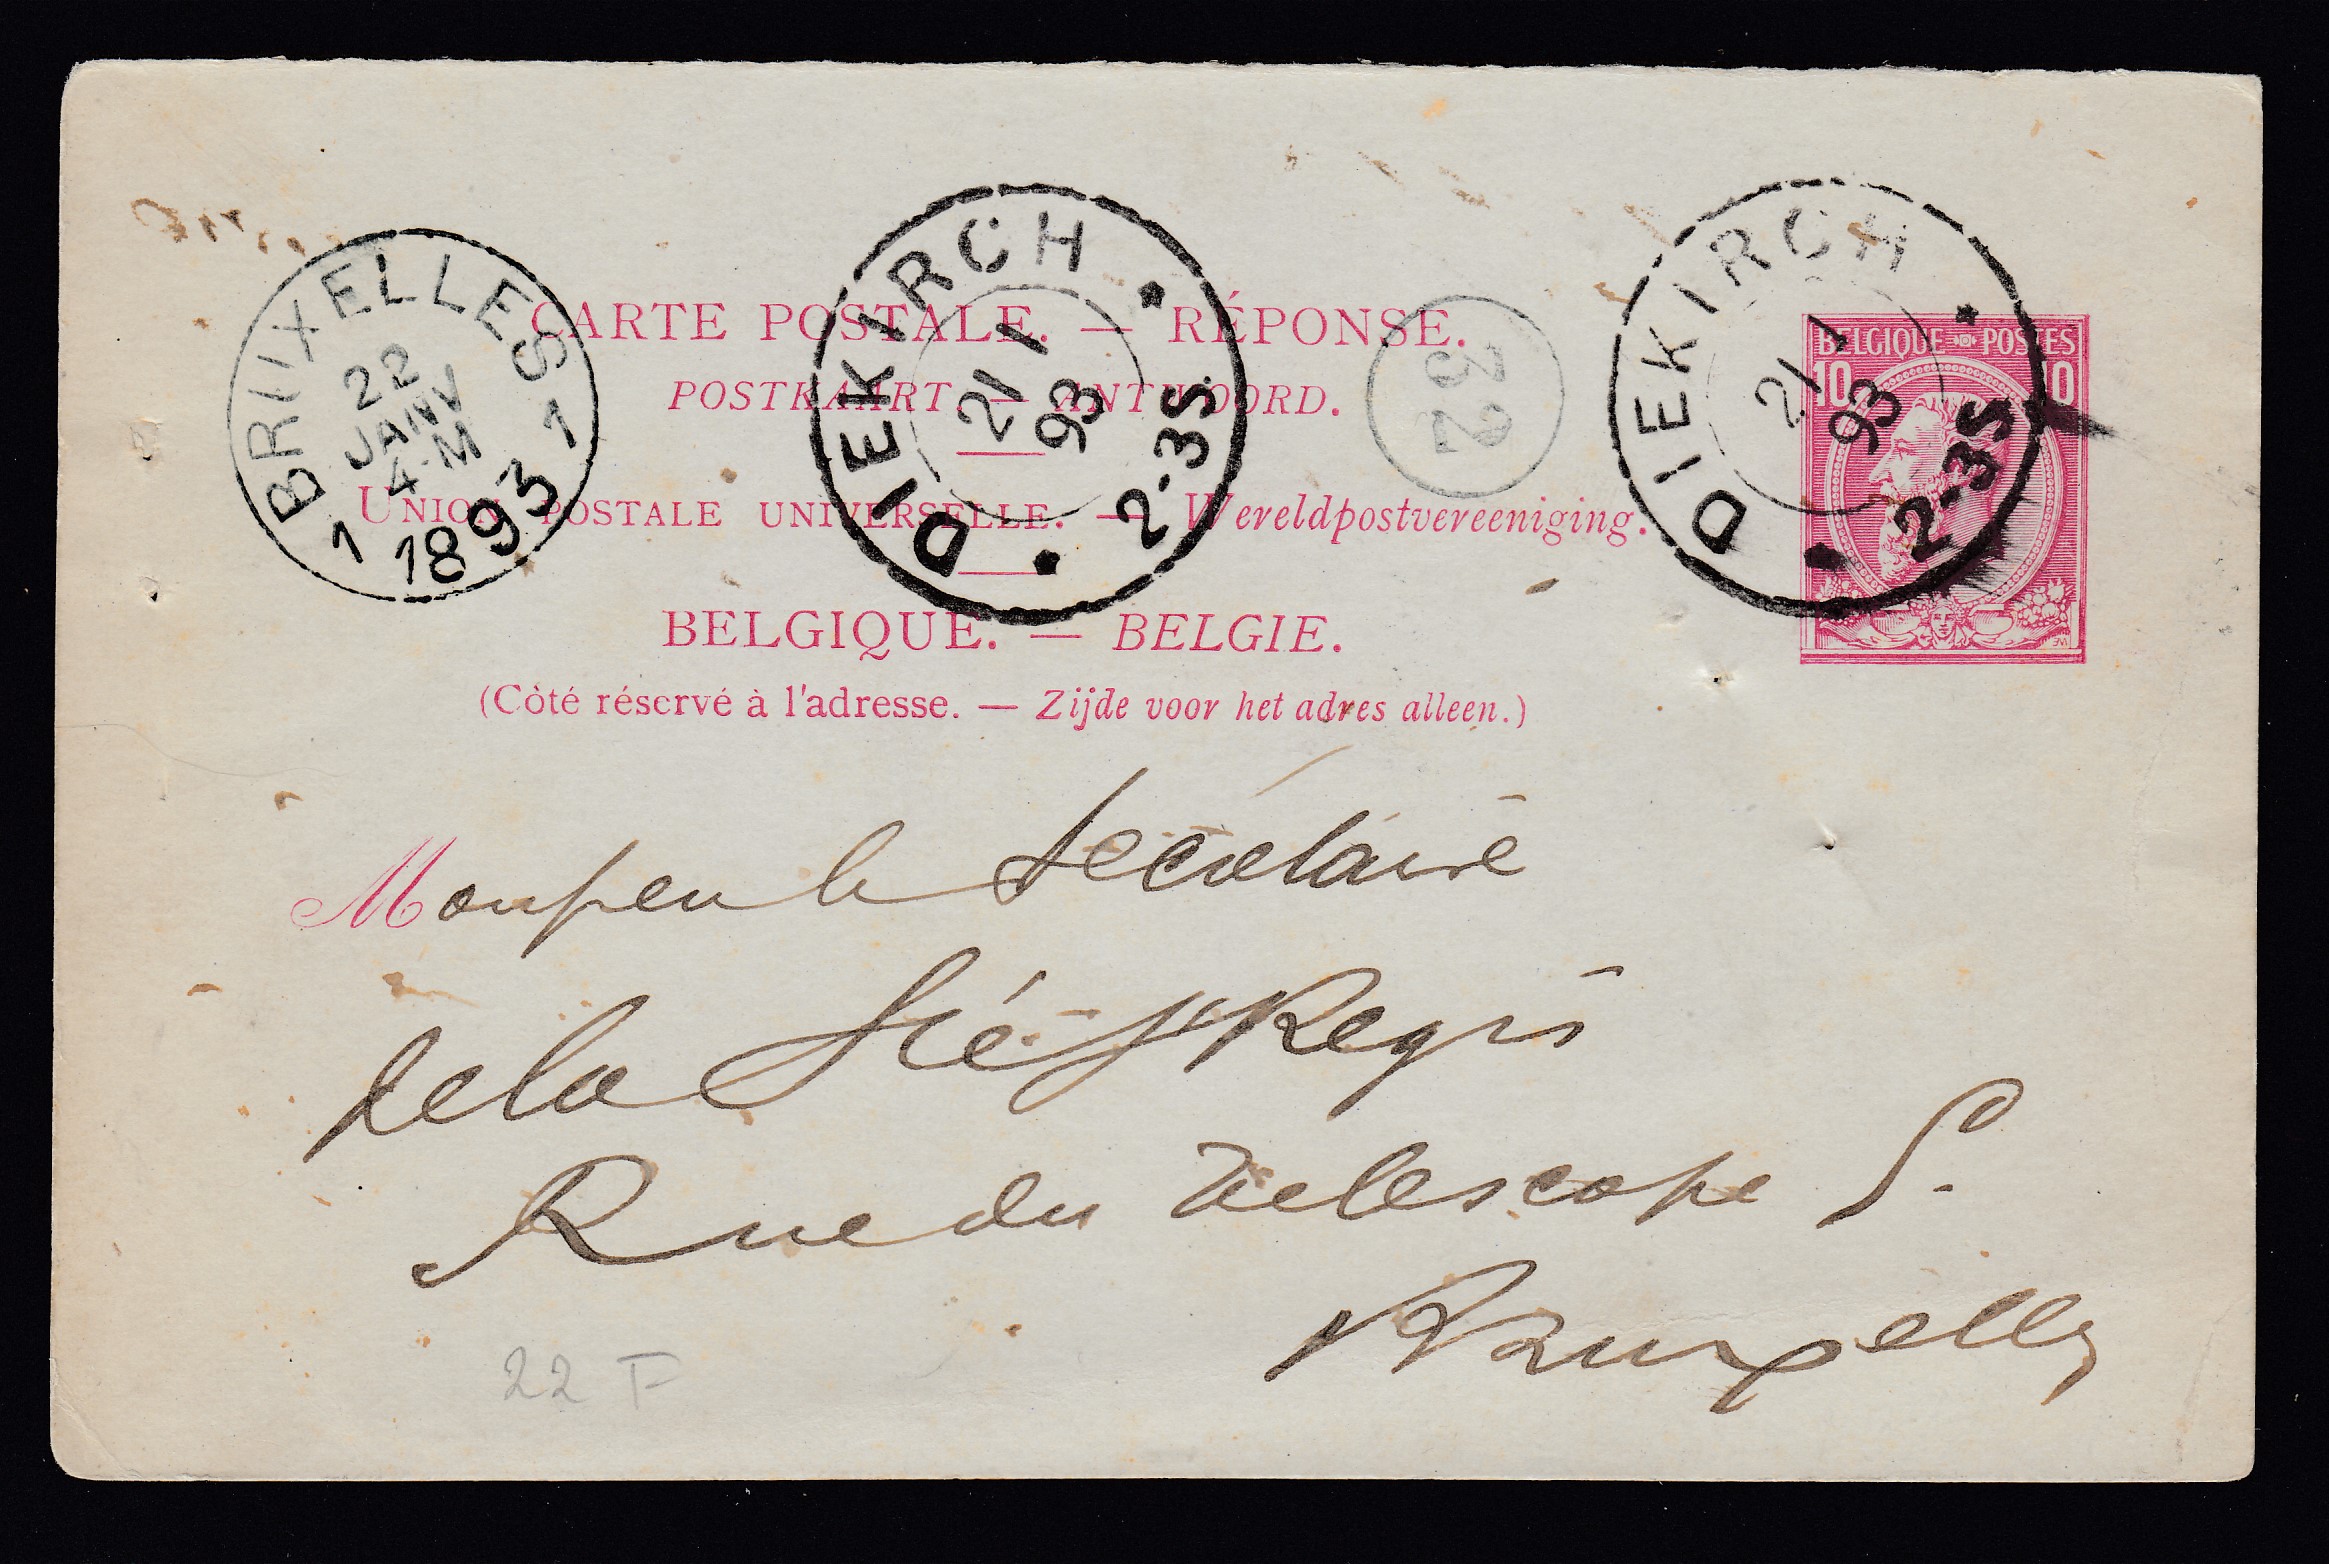 CARTE POSTALE. — RÉPONSE.
POSTKAART. — ANTWOORD.
UNION POSTALE UNIVERSELLE. — Wereldpostvereeniging.
BELGIQUE. — BELGIE.
(Côté réservé à l'adresse. — Zijde voor het adres alleen.)
BRUXELLES
22
JANV
4-M
1 1893 1
DIEKIRCH
21 1
93
2-3S
32
DIEKIRCH
21 1
93
2-3S
BELGIQUE POSTES
10 10
Monsieur le Secrétaire
de la Sté St Régis
Rue du Télescope
Bruxelles
22 F